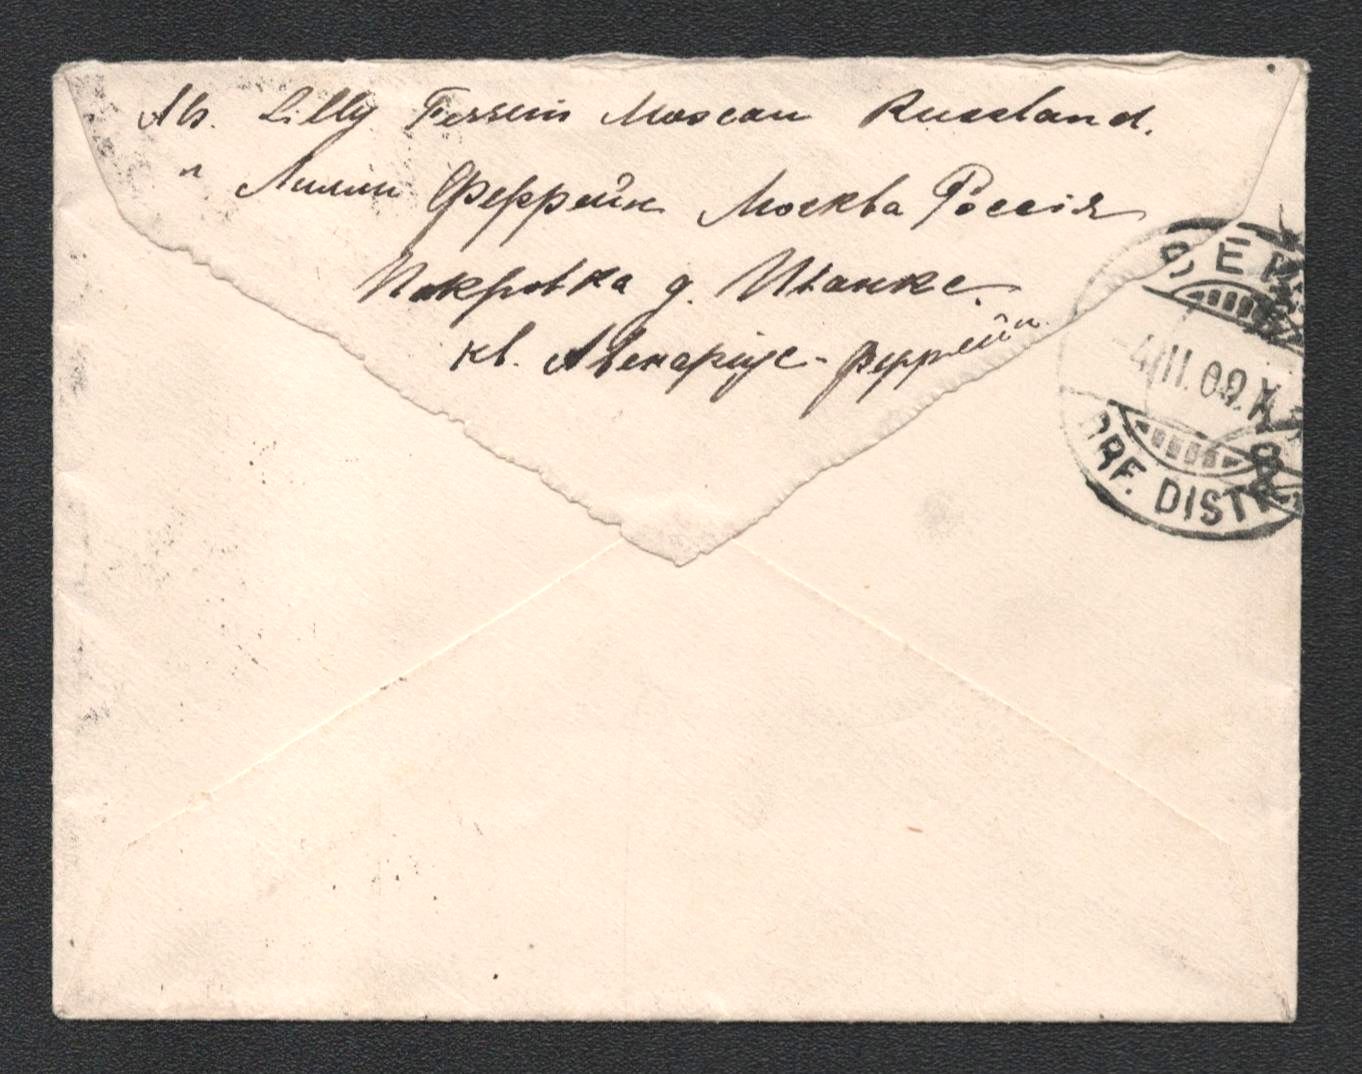 Ab. Lilly Ferrein Moscau Russland.
" Лилли Феррейн Москва Россія
Покровка д. Иванке.
кв. Авенаріус-Феррейн
BER
4/11.09.X
BRF. DISTR